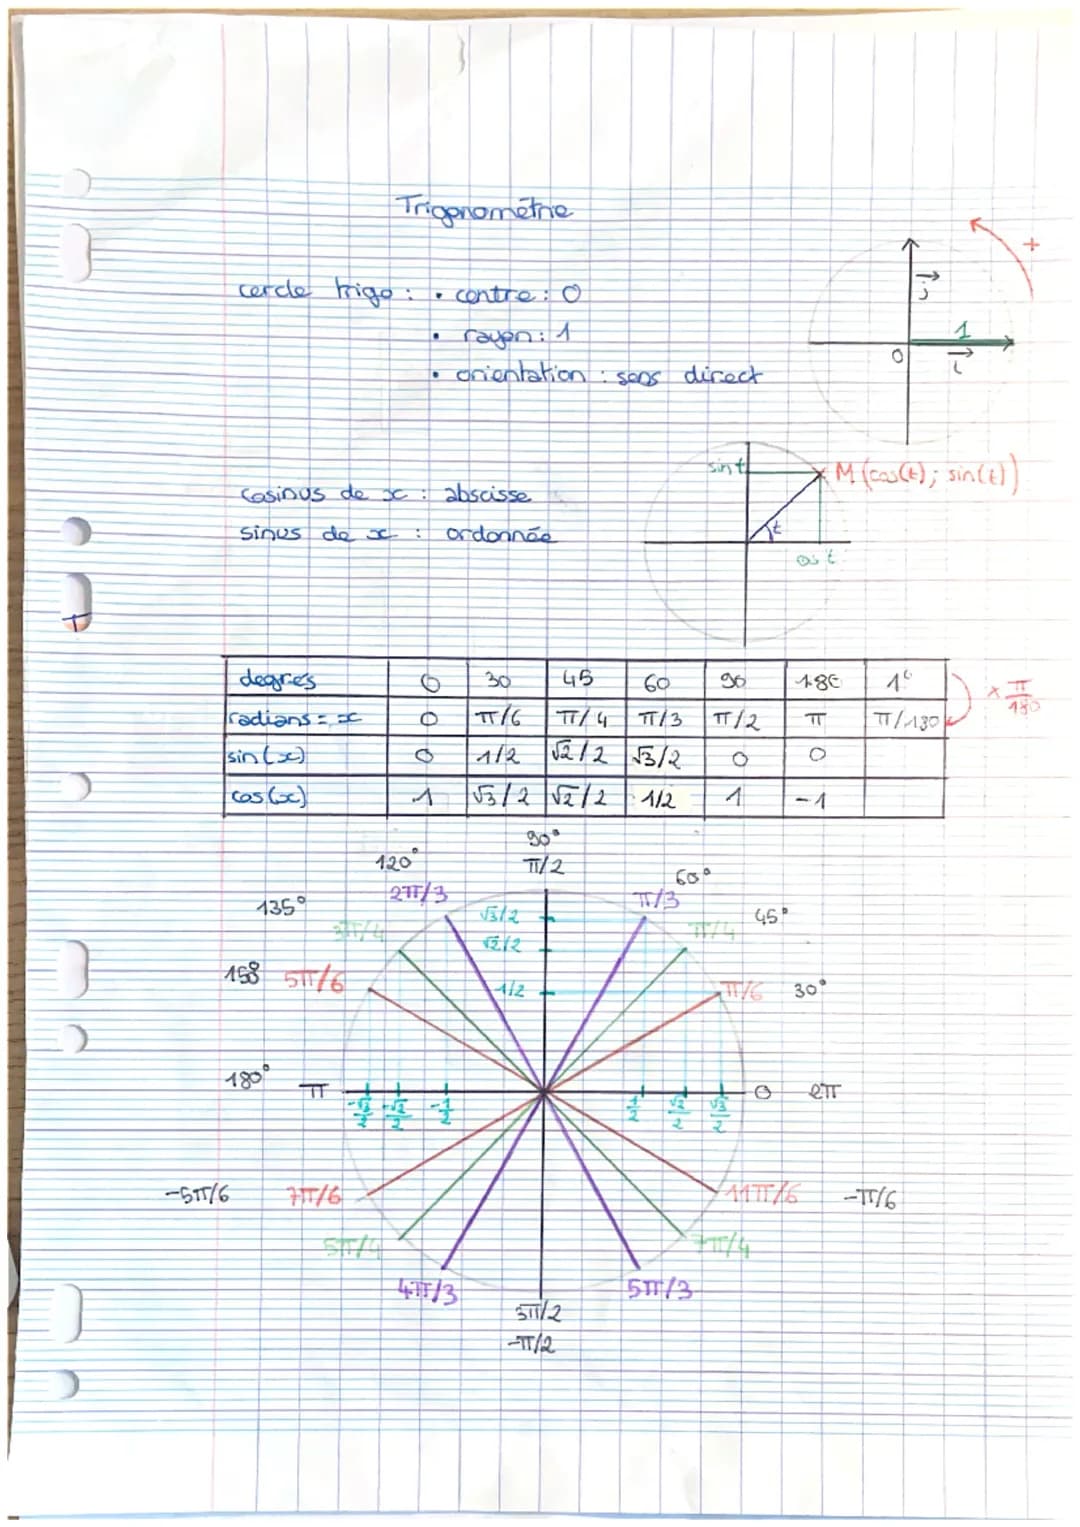 Trigonométrie
+
j
cercle trigo : • centre : O
1
• rayon : 1
O
i
• orientation : sens direct
sin t
M (cos(t) ; sin(t))
cosinus de x : abscisse
t
sinus de x : ordonnée
cos t
degrés 0 30 45 60 90 180 1°
× π/180
radians = x 0 π/6 π/4 π/3 π/2 π π/180
sin(x) 0 1/2 √2/2 √3/2 0 0
cos(x) 1 √3/2 √2/2 1/2 1 -1
90°
120° π/2 60°
2π/3 π/3
135° √3/2 45°
3π/4 √2/2 π/4
150° 5π/6 1/2 π/6 30°
180° π 0 2π
-√3/2 -√2/2 -1/2 1/2 √2/2 √3/2
-5π/6 7π/6 11π/6 -π/6
5π/4 7π/4
4π/3 5π/3
3π/2
-π/2